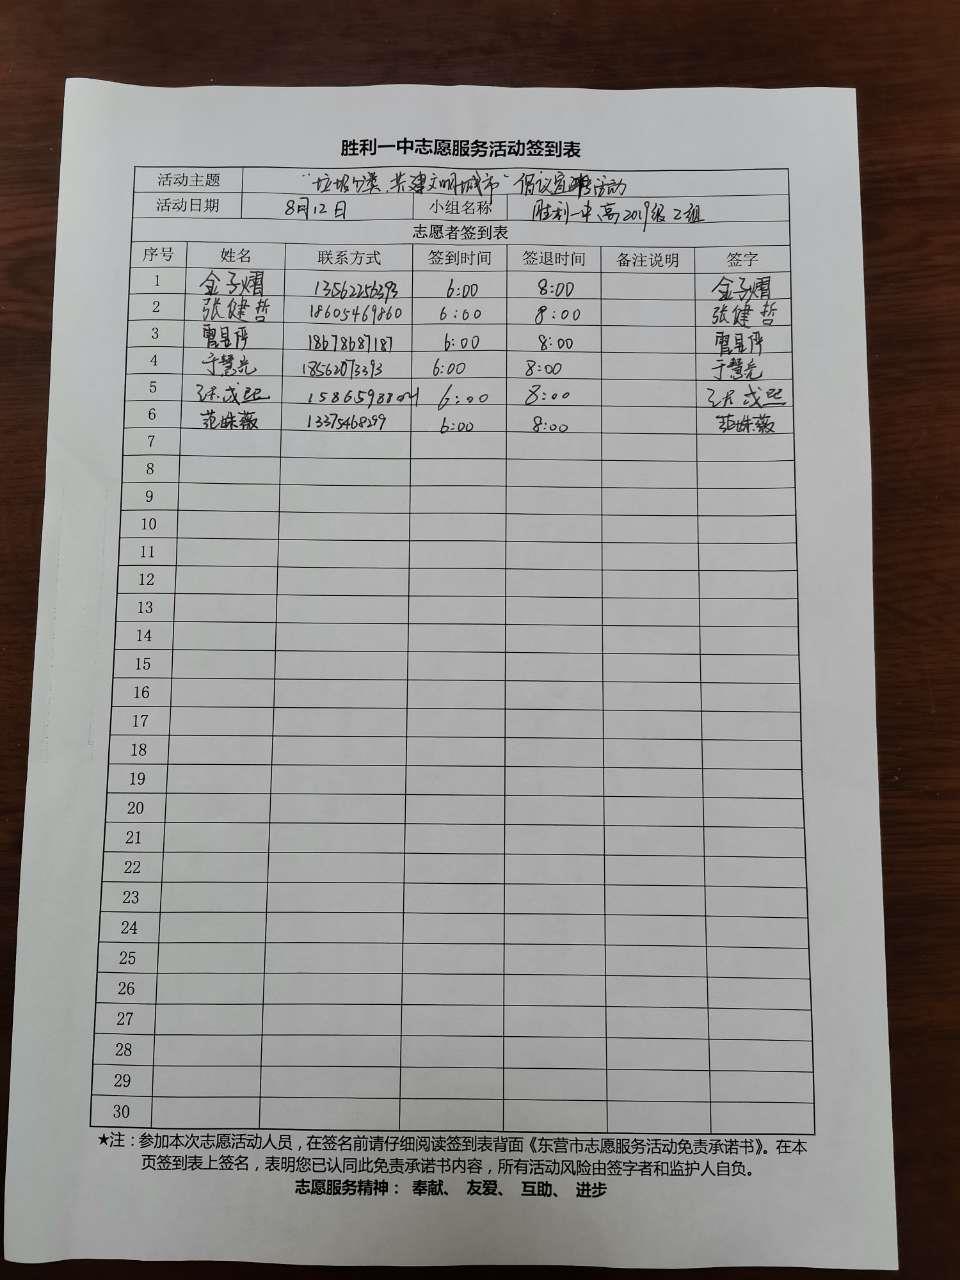 胜利一中志愿服务活动签到表
活动主题 "垃圾分类,共建文明城市"倡议宣讲活动
活动日期 8月12日 小组名称 胜利一中高2019级2组
志愿者签到表
序号 姓名 联系方式 签到时间 签退时间 备注说明 签字
1 金子熠 13562256393 6:00 8:00 金子熠
2 张健哲 18605469860 6:00 8:00 张健哲
3 18678687187 6:00 8:00
4 于慧光 18562073393 6:00 8:00 于慧光
5 6:00 8:00
6 范姝薇 13375468299 6:00 8:00 范姝薇
7
8
9
10
11
12
13
14
15
16
17
18
19
20
21
22
23
24
25
26
27
28
29
30
★注:参加本次志愿活动人员,在签名前请仔细阅读签到表背面《东营市志愿服务活动免责承诺书》。在本
页签到表上签名,表明您已认同此免责承诺书内容,所有活动风险由签字者和监护人自负。
志愿服务精神: 奉献、 友爱、 互助、 进步